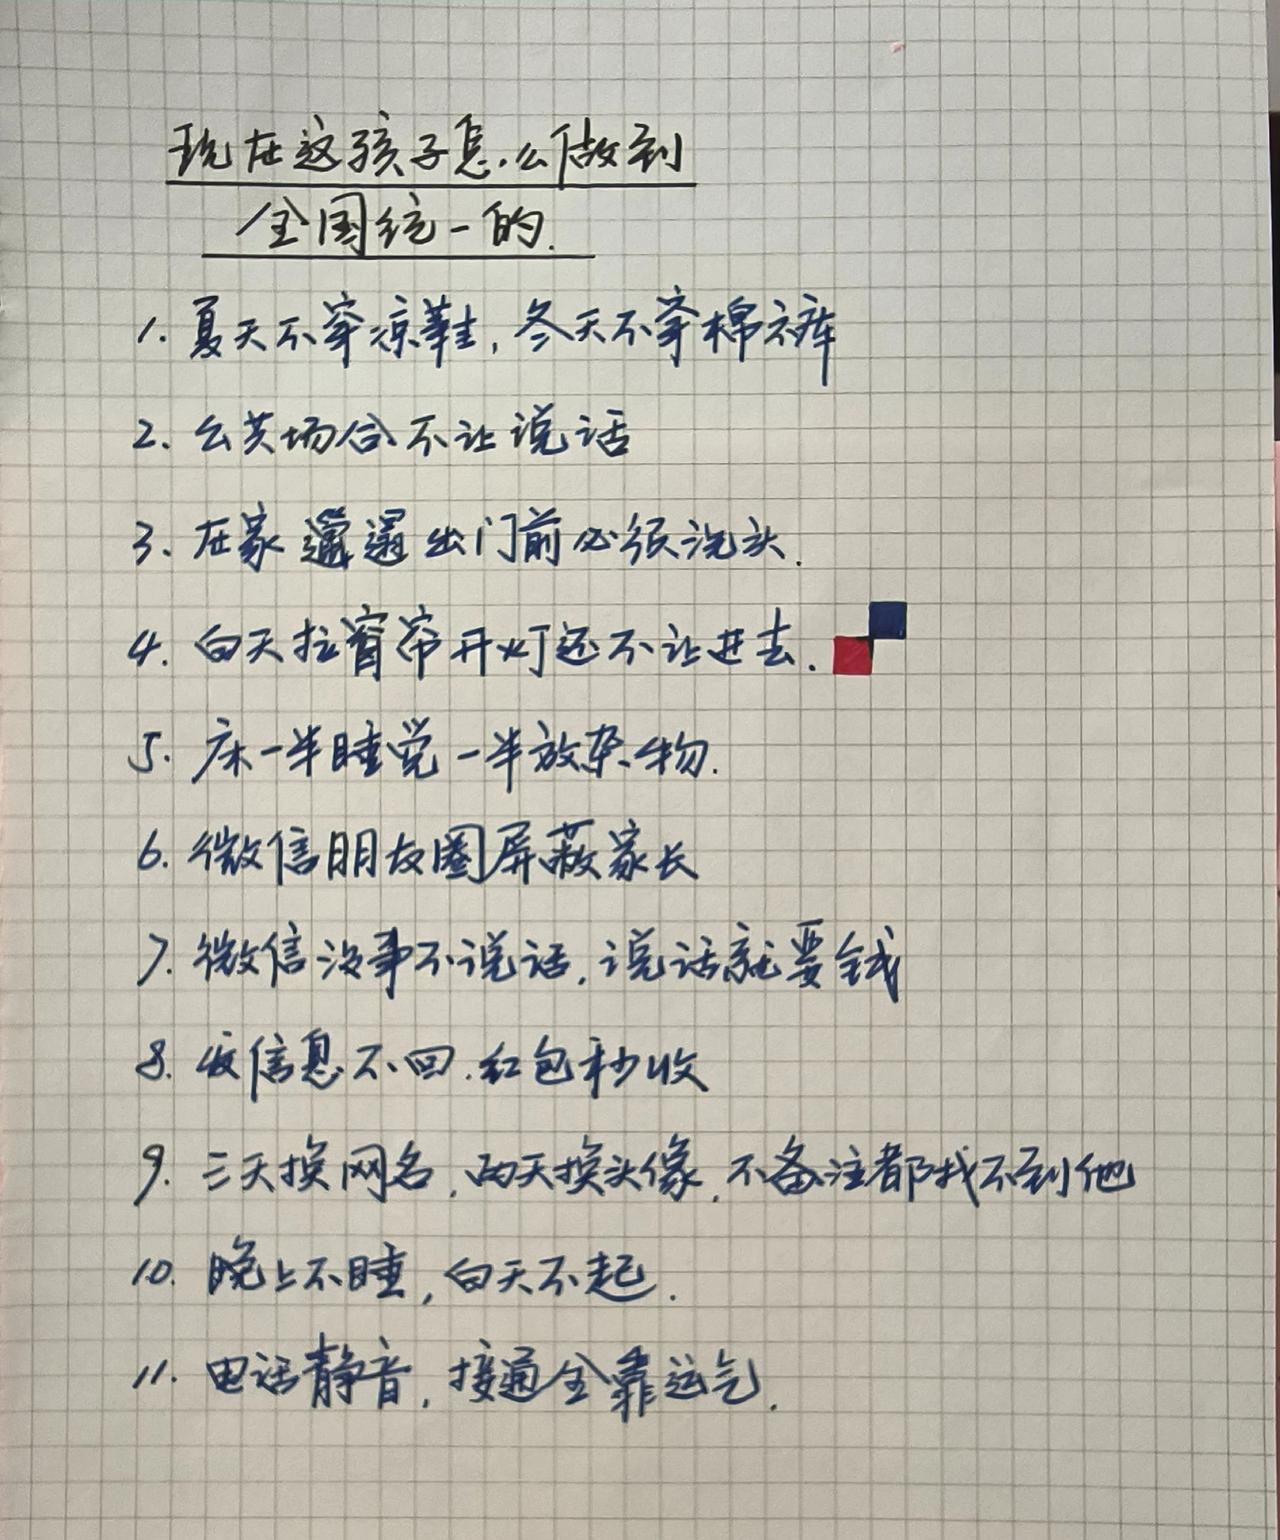 现在这孩子怎么做到
全国统一的.
1. 夏天不穿凉鞋, 冬天不穿棉裤
2. 公共场合不让说话
3. 在家邋遢出门前必须洗头.
4. 白天拉窗帘开灯还不让进去.
5. 床一半睡觉一半放杂物.
6. 微信朋友圈屏蔽家长
7. 微信没事不说话, 说话就要钱
8. 发信息不回. 红包秒收
9. 三天换网名, 两天换头像, 不备注都找不到他
10. 晚上不睡, 白天不起.
11. 电话静音, 接通全靠运气.